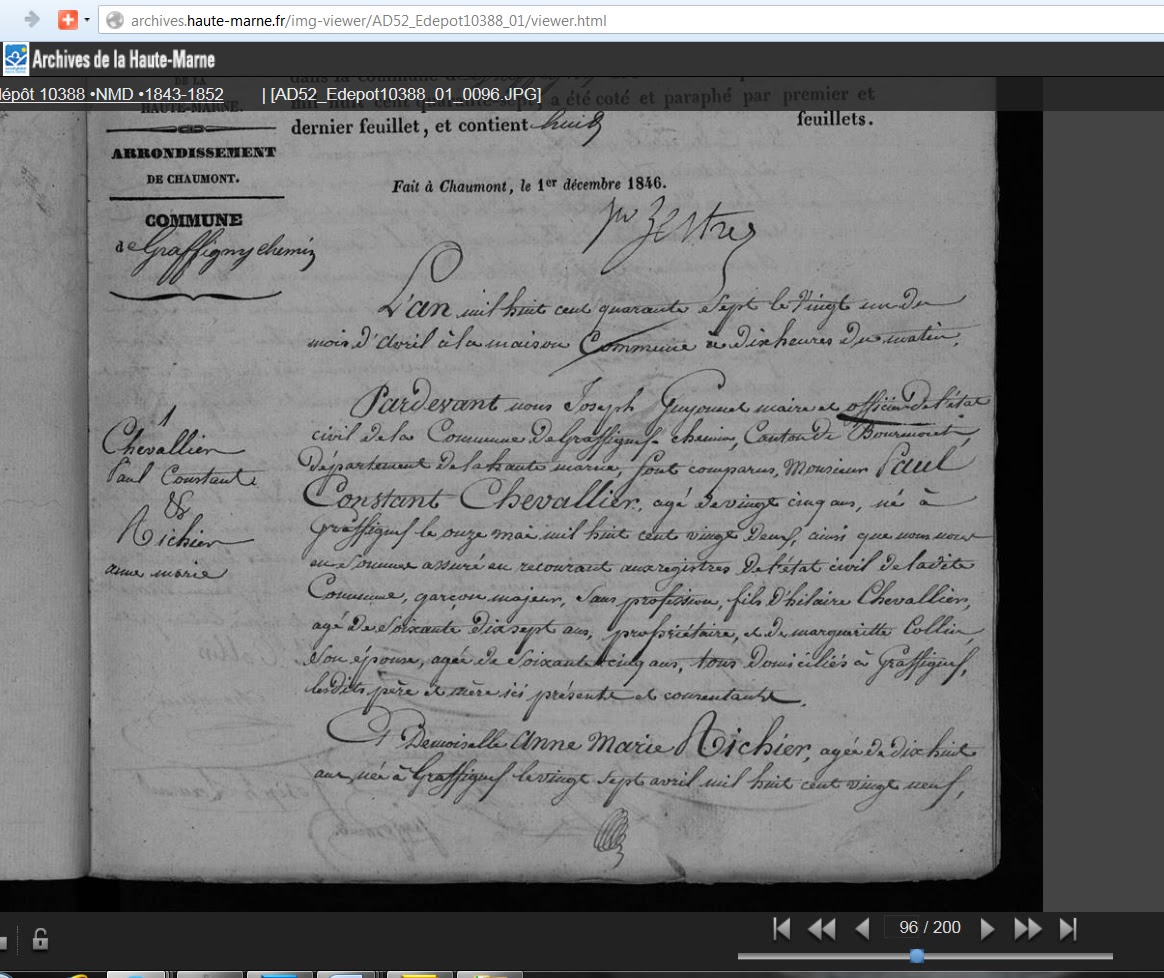 archives.haute-marne.fr/img-viewer/AD52_Edepot10388_01/viewer.html
Archives de la Haute-Marne
épôt 10388 •NMD •1843-1852 | [AD52_Edepot10388_01_0096.JPG]
DE LA
HAUTE-MARNE.
dans la commune de
mil huit cent quarante-sept, a été coté et paraphé par premier et
dernier feuillet, et contient huit feuillets.
ARRONDISSEMENT
DE CHAUMONT.
Fait à Chaumont, le 1er décembre 1846.
COMMUNE
de Graffigny chemin
L'an mil huit cent quarante sept le Vingt un du
mois d'Avril à la maison Commune à dix heures du matin,
Pardevant nous Joseph Guyonnet maire et officier de l'état
civil de la Commune de Graffigny chemin, Canton de Bourmont,
Département de la haute marne, sont comparus, Monsieur Paul
Constant Chevallier, agé de vingt cinq ans, né à
Graffigny le onze mai mil huit cent vingt deux, ainsi que nous nous
en sommes assuré en recourant aux registres de l'état civil de ladite
Commune, garçon majeur, sans profession, fils d'hilaire Chevallier,
agé de soixante dix sept ans, propriétaire, et de margueritte Collin,
son épouse, agée de soixante cinq ans, tous domiciliés à Graffigny,
lesdits père et mère ici présents et consentants.
Et Demoiselle Anne Marie Richier, agée de dix huit
ans, née à Graffigny le vingt sept avril mil huit cent vingt neuf,
1
Chevallier
Paul Constant
&
Richier
anne marie
96 / 200